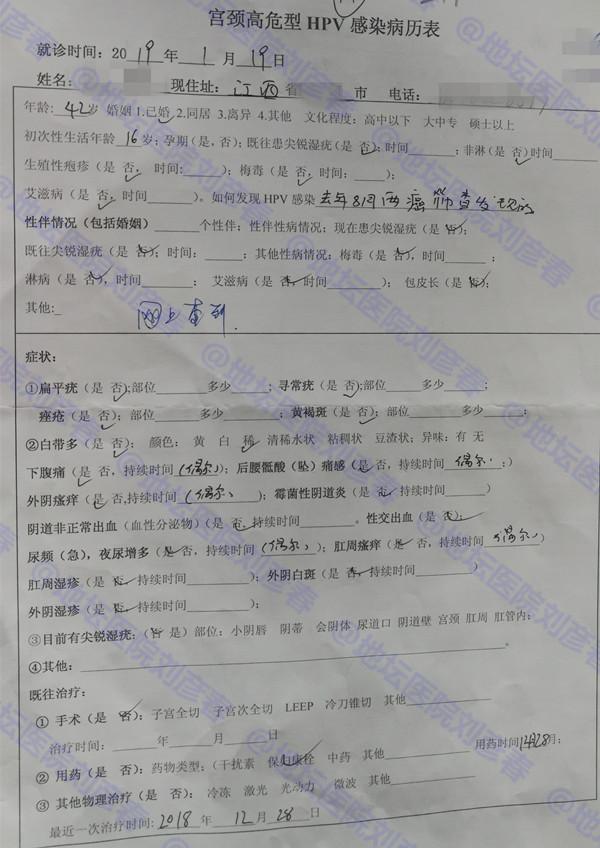 宫颈高危型 HPV 感染病历表
就诊时间：2019年1月19日
姓名： 现住址：江西省 市 电话：
年龄：42岁 婚姻 1.已婚 2.同居 3.离异 4.其他 文化程度：高中以下 大中专 硕士以上
初次性生活年龄 16 岁；孕期（是，否）；既往患尖锐湿疣（是 否）；时间______；非淋（是 否）时间______
生殖性疱疹（是 否， 时间:______）；梅毒（是 否， 时间：______）；
艾滋病（是 否，时间______）。如何发现HPV感染 去年8月两癌筛查发现的
性伴情况（包括婚姻）______个性伴；性伴性病情况；现在患尖锐湿疣（是 否）；
既往尖锐湿疣（是 否）；时间：______； 其他性病情况：梅毒（是 否），时间______；
淋病（是 否），时间______； 艾滋病（是 否，时间______）； 包皮长（是 否）；
其他:_ 网上查到.
症状：
①扁平疣（是 否）;部位______多少______； 寻常疣（是 否）;部位______多少______；
痤疮（是 否）；部位______多少______； 黄褐斑（是 否）；部位______
②白带多（是 否）； 颜色： 黄 白 稀 清稀水状 粘稠状 豆渣状；异味：有 无
下腹痛（是 否，持续时间（偶尔）；后腰骶酸（坠）痛感（是 否，持续时间 偶尔 ；）
外阴瘙痒（是 否,持续时间（偶尔）______）；霉菌性阴道炎（是 否，持续时间______）
阴道非正常出血（血性分泌物）（是 否，持续时间______。性交出血（是 否）；
尿频（急），夜尿增多（是 否，持续时间（偶尔）；肛周瘙痒（是 否，持续时间（偶尔）______）
肛周湿疹（是 否，持续时间______）；外阴白斑（是 否，持续时间______）
外阴湿疹（是 否，持续时间______）；
③目前有尖锐湿疣：（否 是）部位：小阴唇 阴蒂 会阴体 尿道口 阴道壁 宫颈 肛周 肛管内；
④其他：______。
既往治疗：
① 手术（是 否）：子宫全切 子宫次全切 LEEP 冷刀锥切 其他______
治疗时间：______年______月______日
② 用药（是 否）：药物类型：（干扰素 保妇康栓 中药 其他______ 用药时间 月；
③ 其他物理治疗（是 否）： 冷冻 激光 光动力 微波 其他______
最近一次治疗时间: 2018 年 12 月 28 日
@地坛医院刘彦春